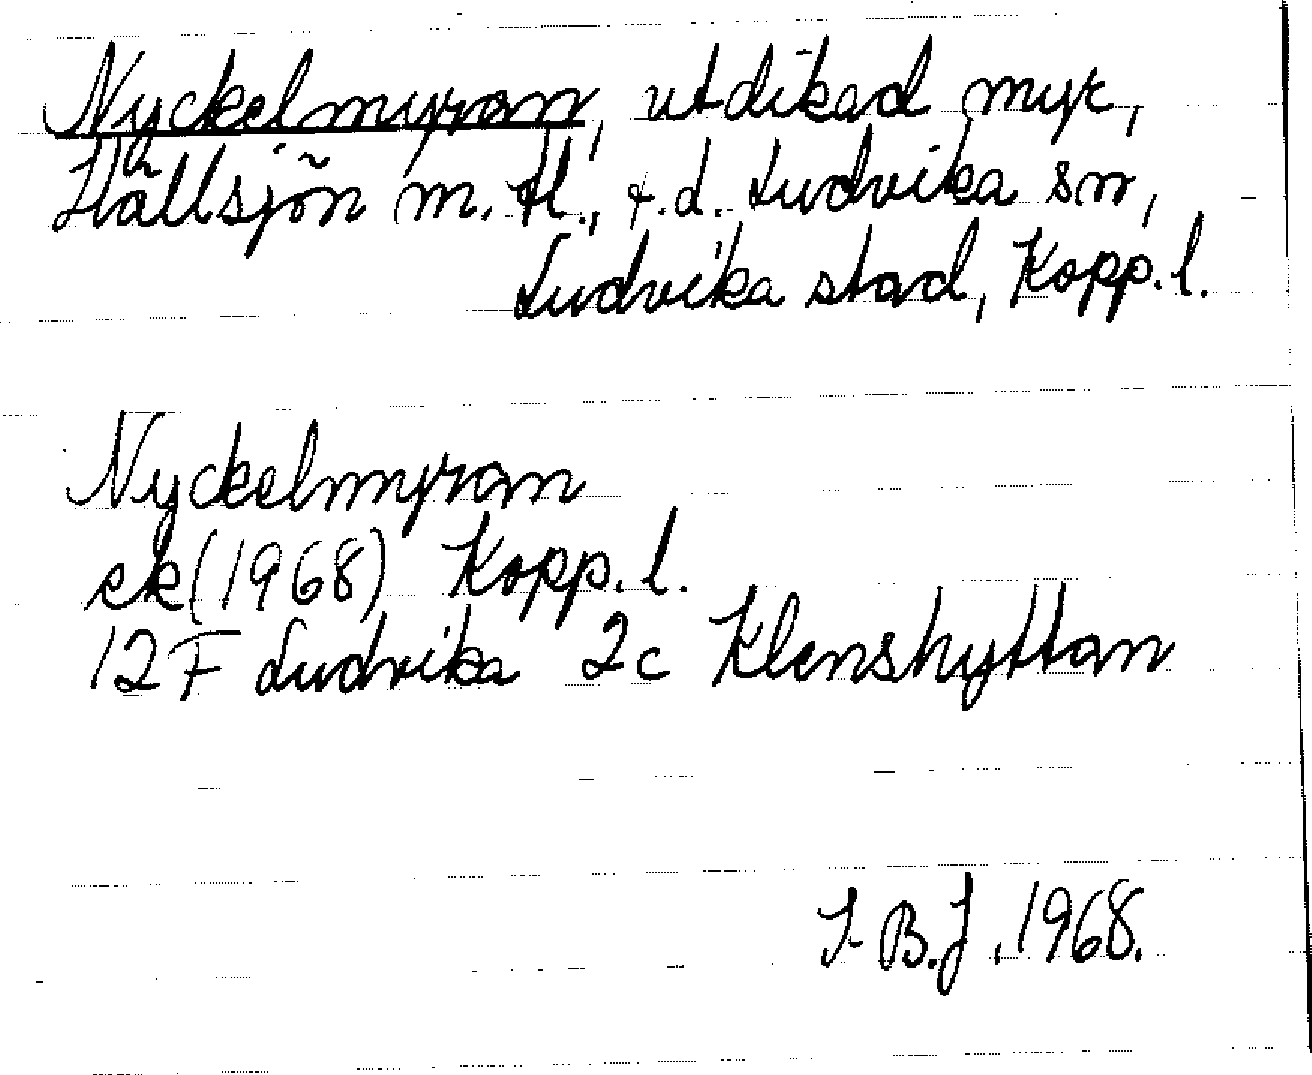 Nyckelmyran, utdikad myr,
Hällsjön m. fl., f.d. Ludvika sn,
Ludvika stad, Kopp. l.
Nyckelmyran
ek (1968) Kopp. l.
12F Ludvika 2c Klenshyttan
I-B.J, 1968.